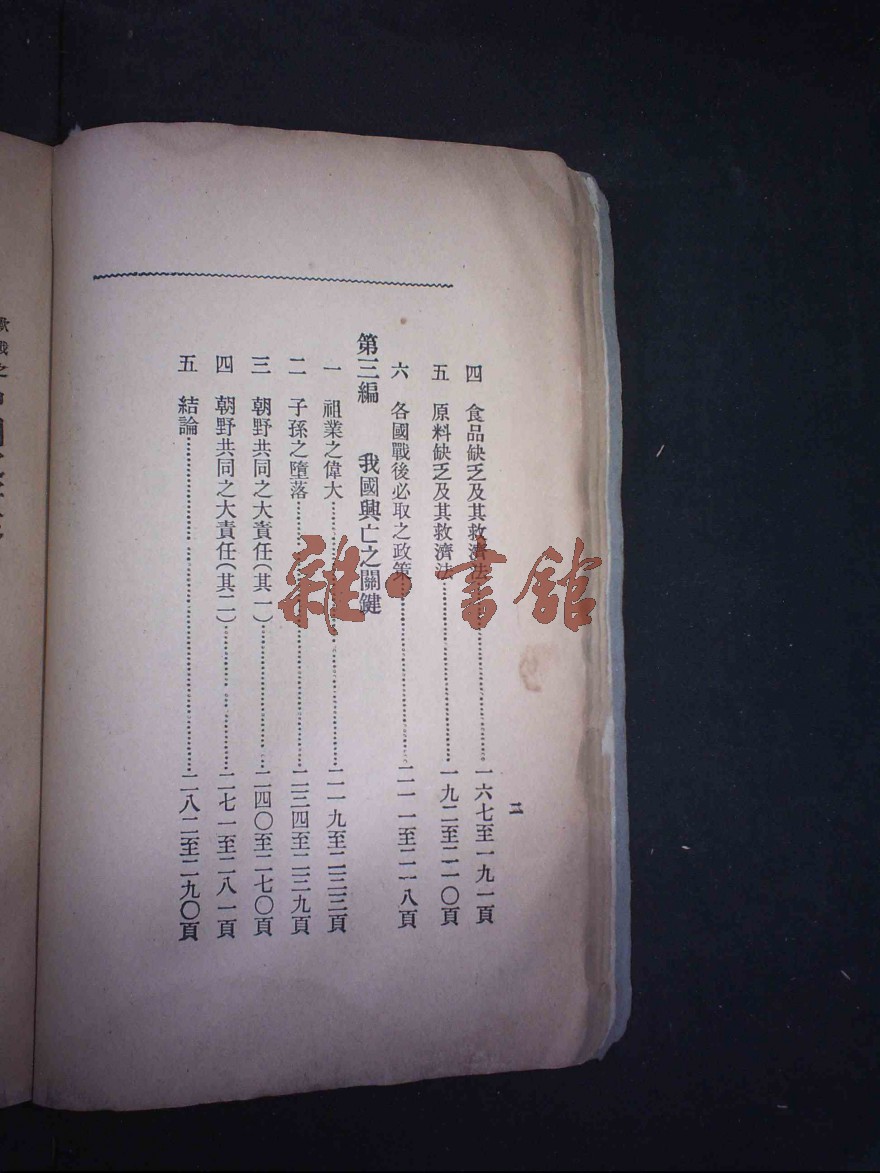 二
四 食品缺乏及其救濟法……………一六七至一九一頁
五 原料缺乏及其救濟法……………一九二至二一〇頁
六 各國戰後必取之政策……………二一一至二一八頁
第三編 我國興亡之關鍵
一 祖業之偉大……………二一九至二三三頁
二 子孫之墮落……………二三四至二三九頁
三 朝野共同之大責任(其一)……………二四〇至二七〇頁
四 朝野共同之大責任(其二)……………二七一至二八一頁
五 結論……………二八二至二九〇頁
雜·書館